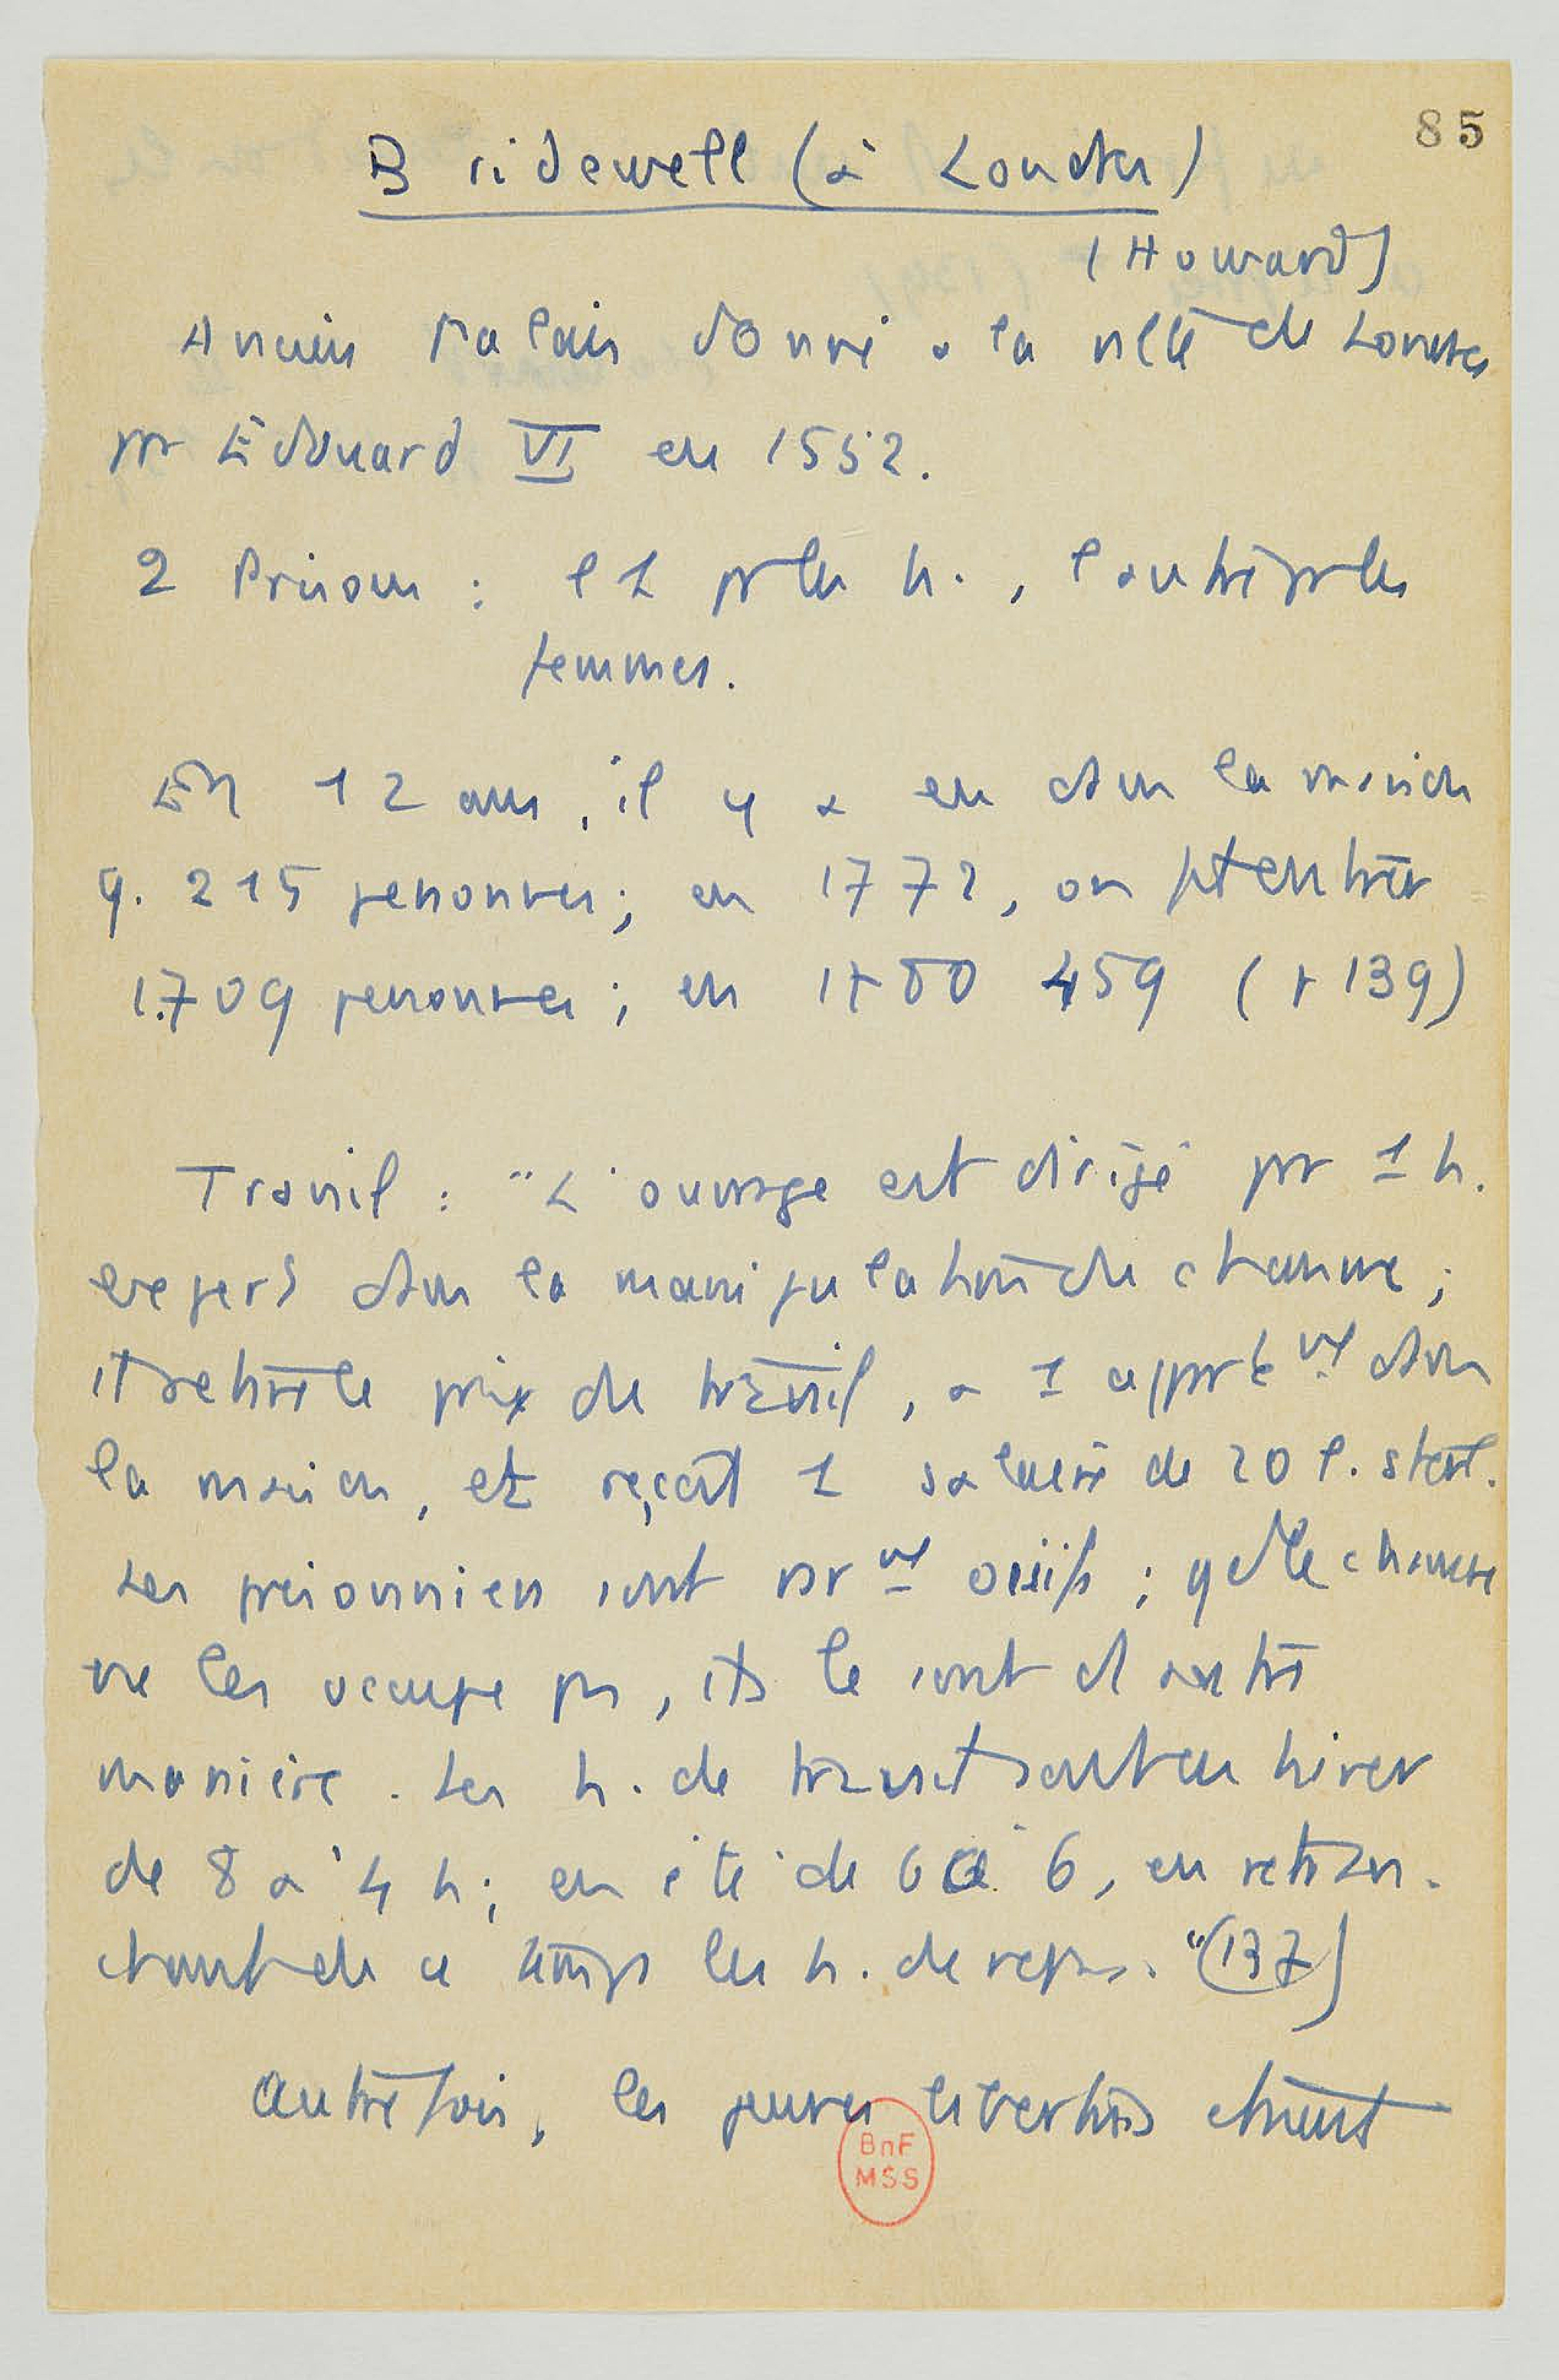 85
Bridewell (à Londres)
(Howard)
Ancien Palais donné a la ville de Londres
pr Edouard VI en 1552.
2 Prisons : l'1 pr les h., l'autre pr les
femmes.
En 12 ans, il y a eu dans la maison
q. 215 personnes; en 1772, on fit entrer
1.709 personnes; en 1780 459 (p 139)
Travail : "L'ouvrage est dirigé par 1 h.
expert dans la manipulation du chanvre;
il retire le prix du travail, a 1 appartt dans
la maison, et reçoit 1 salaire de 20 l. sterl.
Les prisonniers sont rart oisifs; qd le chanvre
ne les occupe pas, ils le sont d'autre
manière. Les h. de travail sont en hiver
de 8 a 4 h; en été de 6 à 6, en retran-
chant de ce temps les h. de repas." (137)
Autrefois, les jeunes libertins étaient
BnF
MSS